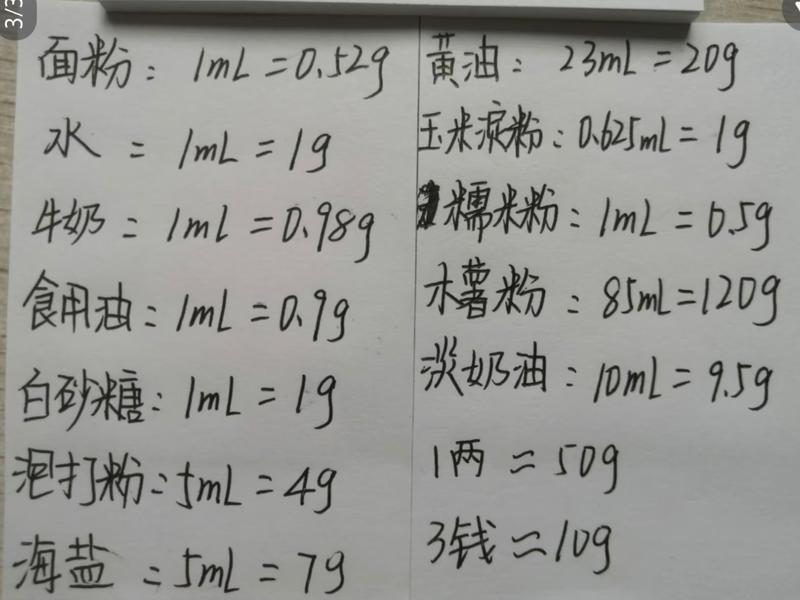 3/3
面粉：1mL=0.52g
水：1mL=1g
牛奶：1mL=0.98g
食用油：1mL=0.9g
白砂糖：1mL=1g
泡打粉：5mL=4g
海盐：5mL=7g
黄油：23mL=20g
玉米淀粉：0.625mL=1g
糯米粉：1mL=0.5g
木薯粉：85mL=120g
淡奶油：10mL=9.5g
1两≈50g
3钱≈10g